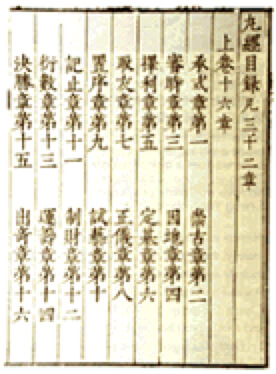 丸經目錄凡三十二章
上卷十六章
承式章第一　崇古章第二
審時章第三　因地章第四
擇利章第五　定基章第六
取友章第七　正儀章第八
置序章第九　試藝章第十
記止章第十一　制財章第十二
衍數章第十三　運章第十四
決勝章第十五　出奇章第十六